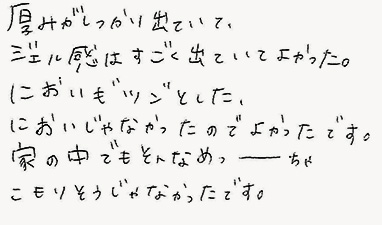 厚みがしっかり出ていて、
ジェル感はすごく出ていてよかった。
においもツンとした、
においじゃなかったのでよかったです。
家の中でもそんなめっーちゃ
こもりそうじゃなかったです。